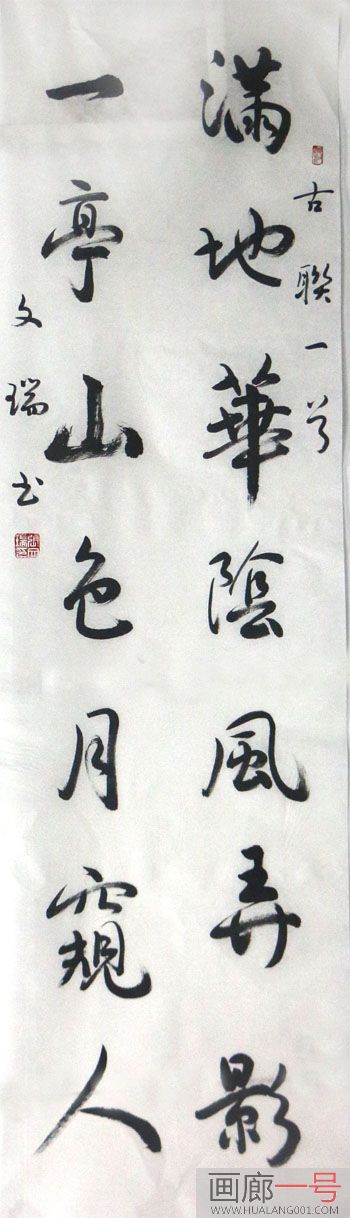 滿地華陰風弄影
一亭山色月窺人
古聯一首
文瑞书
画廊一号
WWW.HUALANG001.COM